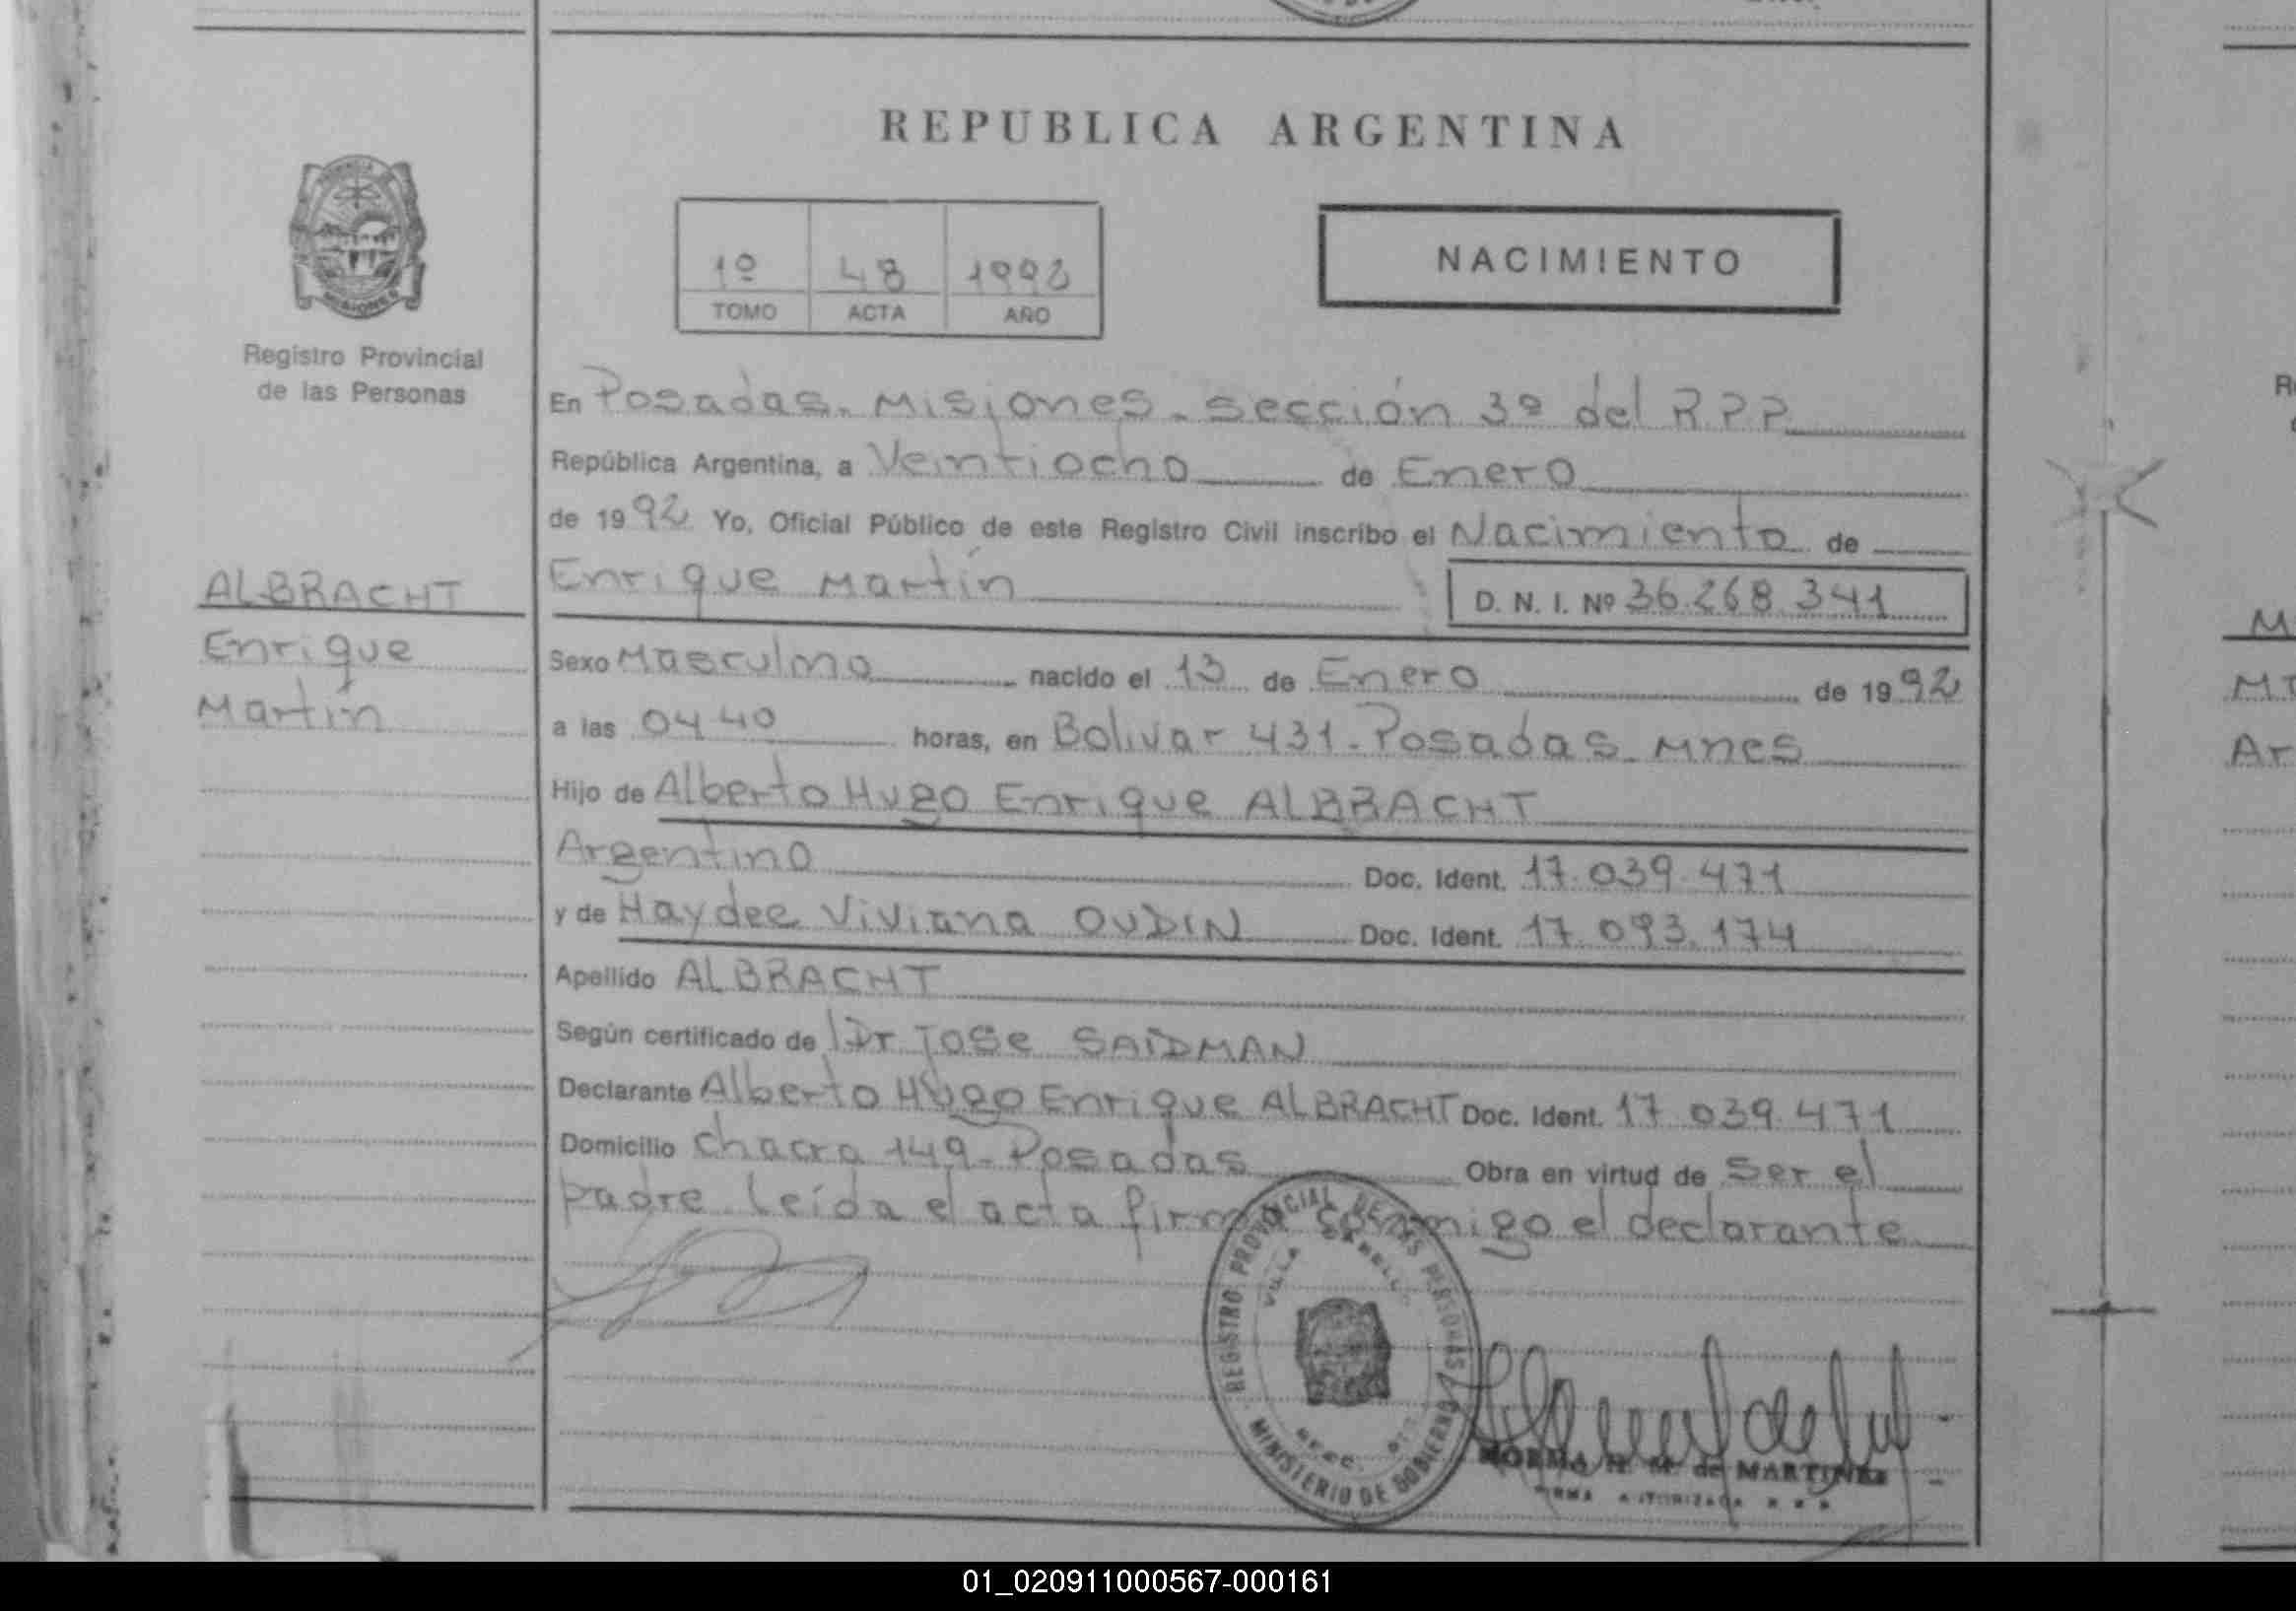 REPUBLICA ARGENTINA
1º 48 1992
TOMO ACTA AÑO
NACIMIENTO
Registro Provincial
de las Personas
ALBRACHT
Enrique
Martín
En Posadas. Misiones. sección 3º del R P P
República Argentina, a Veintiocho de Enero
de 1992 Yo, Oficial Público de este Registro Civil inscribo el Nacimiento de
Enrique Martín
D. N. I. Nº 36.268.341
Sexo Masculino nacido el 13 de Enero de 1992
a las 04 40 horas, en Bolivar 431. Posadas. Mnes
Hijo de Alberto Hugo Enrique ALBRACHT
Argentino Doc. Ident. 17.039.471
y de Haydee Viviana OUDIN Doc. Ident. 17.093.174
Apellido ALBRACHT
Según certificado de Dr Jose SAIDMAN
Declarante Alberto Hugo Enrique ALBRACHT Doc. Ident. 17 039.471
Domicilio chacra 149. Posadas Obra en virtud de ser el
padre. Leída el acta firma conmigo el declarante
REGISTRO PROVINCIAL DE LAS PERSONAS
VILLA
MINISTERIO DE GOBIERNO
NORMA H. M. de MARTINEZ
FIRMA AUTORIZADA
01_020911000567-000161